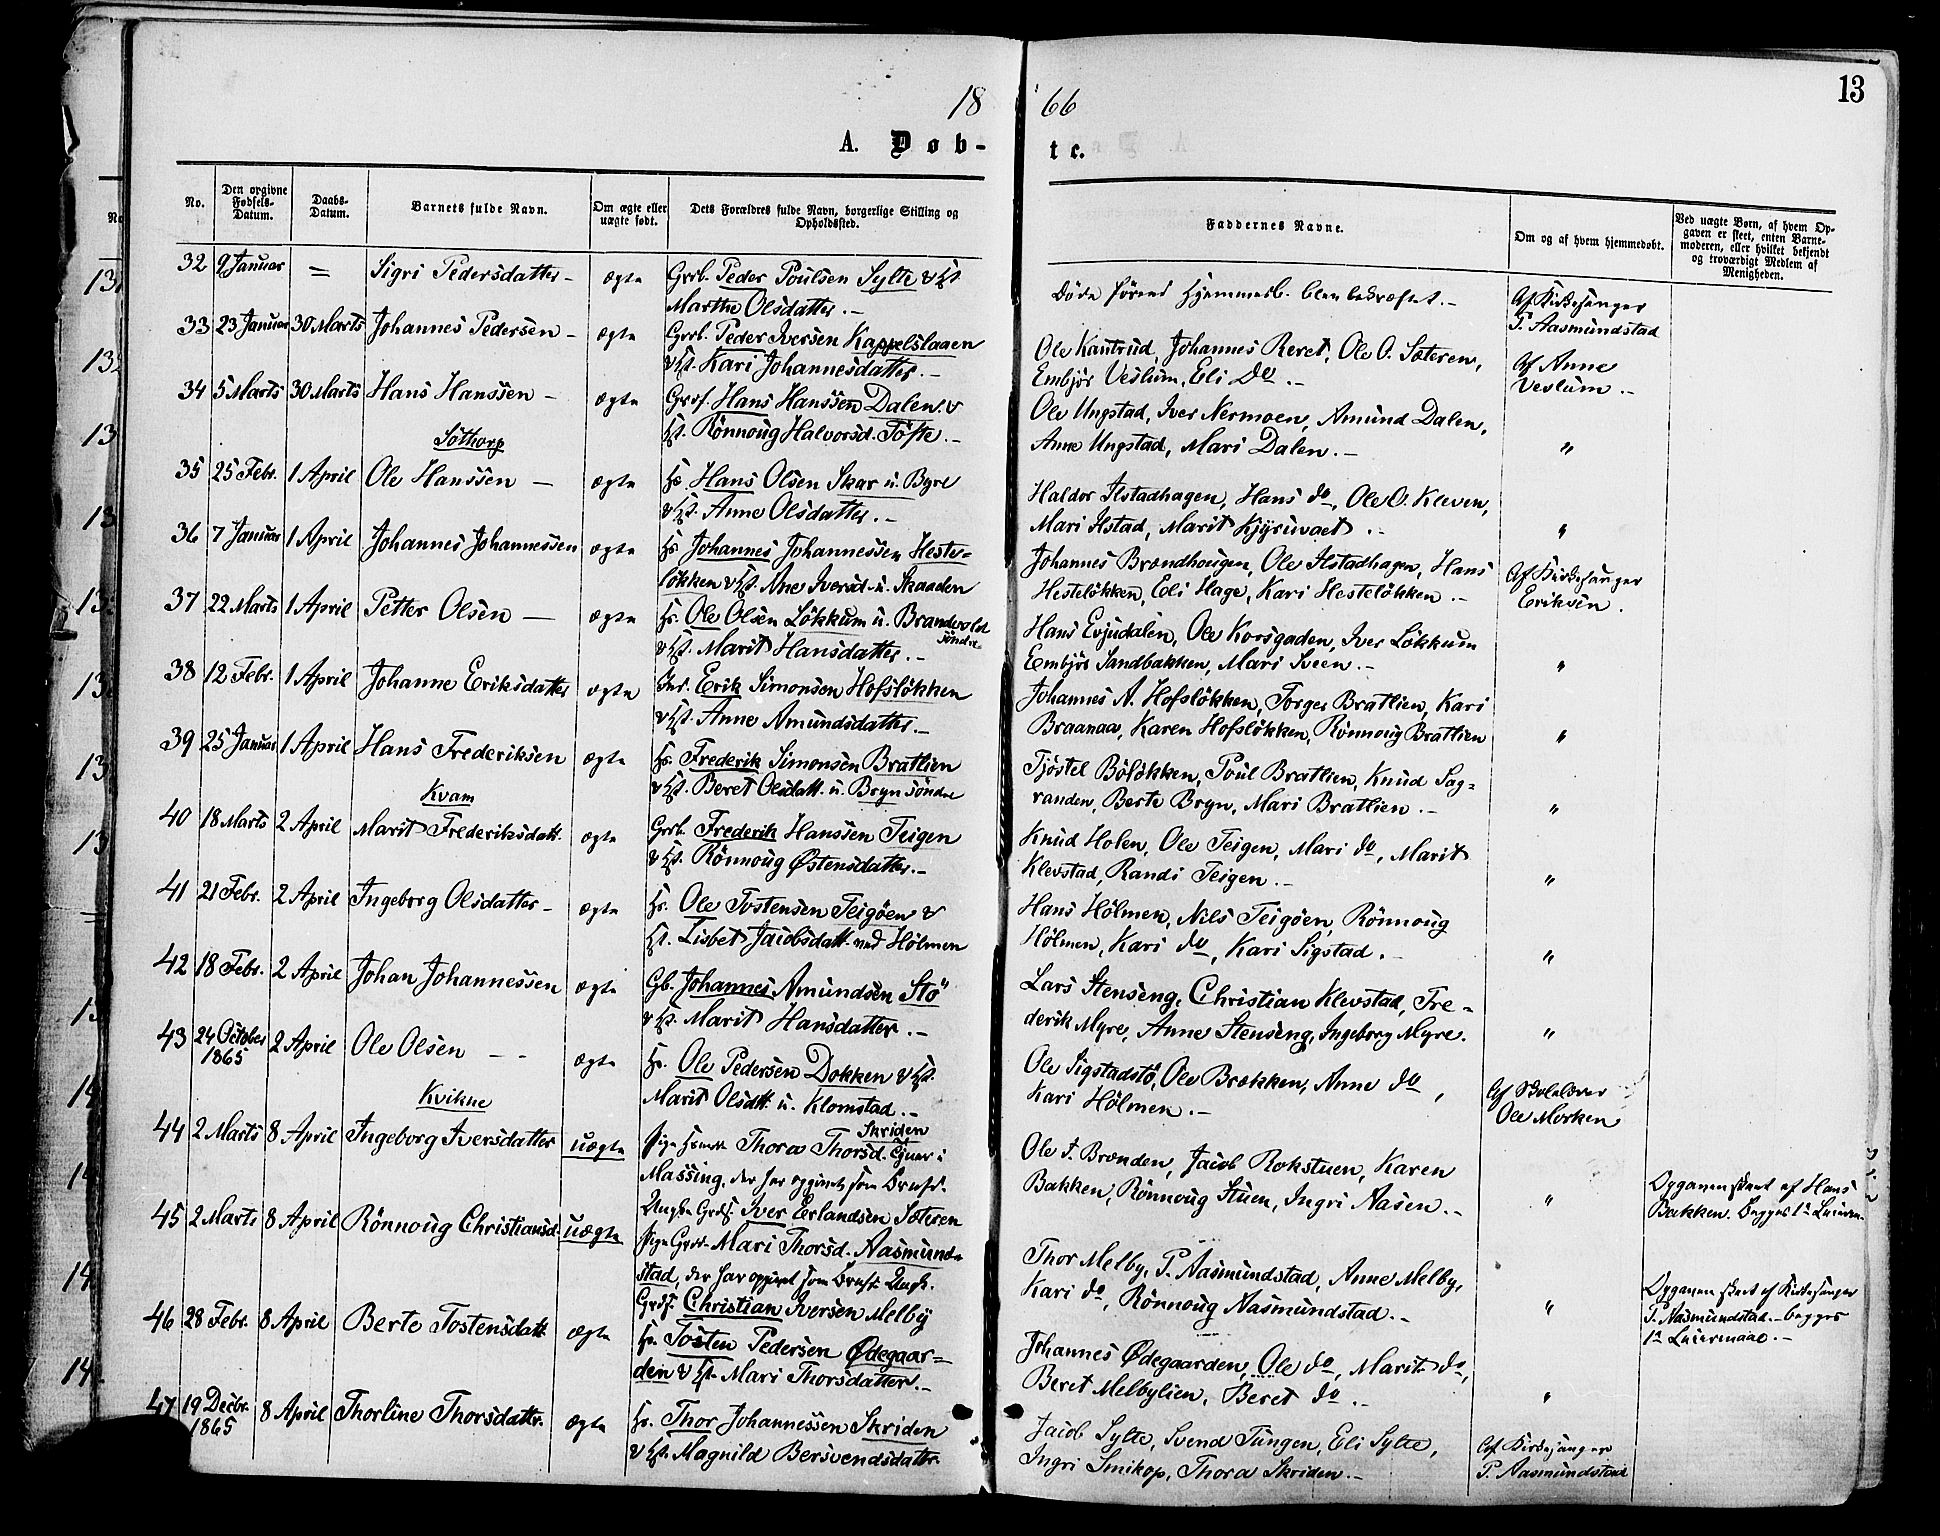 13
18 66
A. Døbte.
No.
Den opgivne Fødsels-Datum.
Daabs-Datum.
Barnets fulde Navn.
Om ægte eller uægte født.
Dets Forældres fulde Navn, borgerlige Stilling og Opholdssted.
Faddernes Navne.
Om og af hvem hjemmedøbt.
Ved uægte Børn, af hvem Opgaven er skeet, enten Barnemoderen, eller hvilket bekjendt og troværdigt Medlem af Menigheden.
32 9 Januar = Sigri Pedersdatter - ægte Grb. Peder Poulsen Sylte & Hst.
Marthe Olsdatter. -
Døde førend Hjemmed. blev bekræftet. - Af Kirkesanger
P. Aasmundstad
33 23 Januar 30 Marts Johannes Pedersen - ægte Grb. Peder Iversen Kappelslaaen
& Hst. Kari Johannesdatter. -
Ole Kantrud, Johannes Reret, Ole O. Sæteren, Af Anne
Embjør Veslum, Eli do. - Veslum. -
34 5 Marts 30 Marts Hans Hanssen - ægte Hans Hanssen Dalen &
Hst. Rönnoug Halvorsd. Tofte. -
Ole Ungstad, Iver Nermoen, Amund Dalen,
Anne Ungstad, Mari Dalen. - "
Sothorp
35 25 Febr. 1 April Ole Hanssen - ægte Hans Olsen Skar u. Byre
& Hst. Anne Olsdatter. -
Haldor Ilstadhagen, Hans do, Ole O. Kleven,
Mari Ilstad, Marit Kjyruvaet. - "
36 7 Januar 1 April Johannes Johannessen ægte Hs. Johannes Johannessen Heste-
løkken & Hst. Ane Iversd. u. Skaaden
Johannes Brændhougen, Ole Ilstadhagen, Hans Af Kirkesanger
Hesteløkken, Eli Hage, Kari Hesteløkken. - Eriksen.
37 22 Marts 1 April Petter Olsen - ægte Hs. Ole Olsen Løkkum u. Brandvold
søndre
& Hst. Marit Hansdatter. -
Hans Evjudalen, Ole Korsgaden, Iver Løkkum
Embjør Sandbakken, Mari Sveen. - "
38 12 Febr. 1 April Johanne Eriksdatter ægte Inr. Erik Simonsen Hofsløkken
& Hst. Anne Amundsdatter. -
Johannes A. Hofsløkken, Torger Bratlien, Kari
Braanaa, Karen Hofsløkken, Rönnoug Bratlien "
39 25 Januar 1 April Hans Frederiksen ægte Hs. Frederik Simonsen Bratlien
& Hst. Beret Olsdatt. u. Bryn søndre
Tjøstel Böløkken, Poul Bratlien, Knud Sag-
randen, Berte Bryn, Mari Bratlien. - "
Kvam
40 18 Marts 2 April Marit Frederiksdatt. ægte Grb. Frederik Hanssen Teigen
& Hst. Rönnoug Østensdatter. -
Knud Holen, Ole Teigen, Mari do, Marit
Klevstad, Randi Teigen. - "
41 21 Febr. 2 April Ingeborg Olsdatter - ægte Hs. Ole Tostensen Teigöen &
Hst. Lisbet Jacobsdatt. ved Hölmen
Hans Hölmen, Nils Teigöen, Rönnoug
Hölmen, Kari do, Kari Sigstad. - "
42 18 Febr. 2 April Johan Johannessen ægte Gb. Johannes Amundsen Stö
& Hst. Marit Hansdatter. -
Lars Stenseng, Christian Klevstad, Fre-
derik Myre, Anne Stenseng, Ingeborg Myre. "
43 24 October 1865 2 April Ole Olsen - - ægte Hs. Ole Pedersen Dokken & Hst.
Marit Olsdtt. u. Klomstad. -
Ole Sigstadstö, Ole Brækken, Anne do, Af Skolelærer
Kari Hölmen. - Ole Morken
Kvikne
44 2 Marts 8 April Ingeborg Iversdatter uægte Pige Thora Thorsd. Skriden
Massing, der har opgivet som Barnef.
Ungk. Iver Erlandsen Sæteren
Ole I. Brænden, Jacob Rokstuen, Karen
Bakken, Rönnoug Stuen, Ingri Aasen. - "
Opgaven skeet af Hans
Bakken. Begges 1te Leierm.
45 2 Marts 8 April Rönnoug Christiansd. uægte Pige Mari Thorsd. Aasmund-
stad, der har opgivet som Barnef. Ungk.
Christian Iversen Melby
Thor Melby, P. Aasmundstad, Anne Melby,
Kari do, Rönnoug Aasmundstad. - "
Opgaven skeet af Kirkesanger
P. Aasmundstad. - begges
1te Leiermaal. -
46 28 Febr. 8 April Berte Tostensdatt. ægte Hs. Tosten Pedersen Ødegaar-
den & Hst. Mari Thorsdatter. -
Johannes Ødegaarden, Ole do, Marit do,
Beret Melbylien, Beret do. - "
47 19 Decbr. 1865 8 April Thorline Thorsdattr. ægte Hs. Thor Johannessen Skriden
& Hst. Magnild Bersvendsdattr.
Jacob Sylte, Svend Tungen, Eli Sylte, Af Kirkesanger
Ingri Smikop, Thora Skriden. - P. Aasmundstad